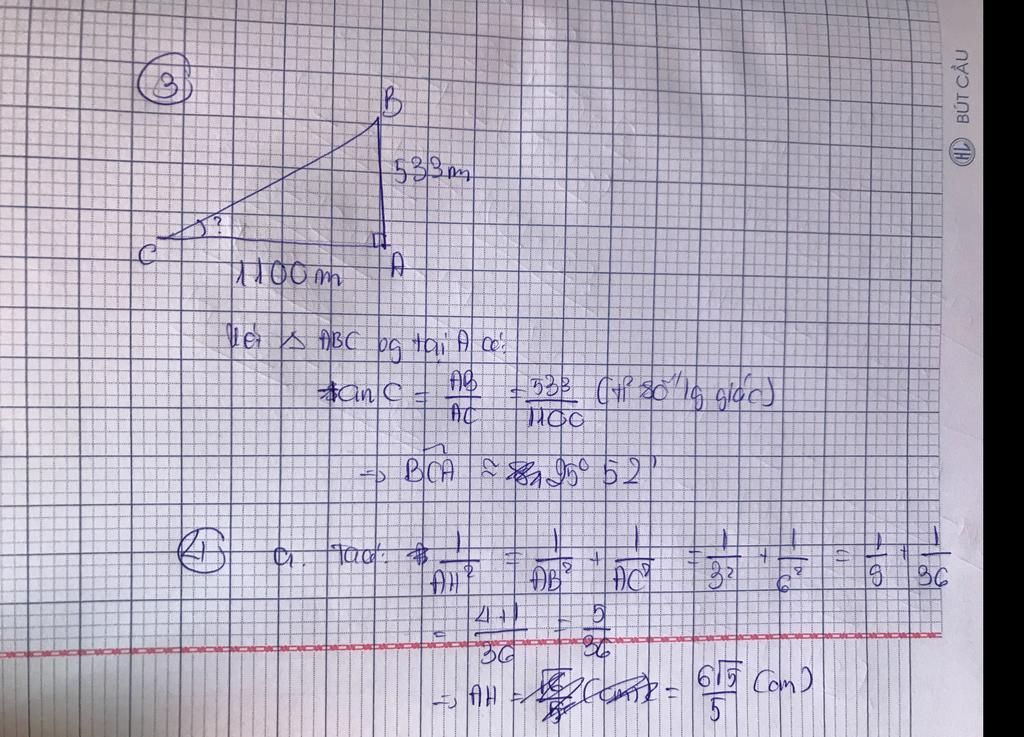 3
B
533m
?
C
1100m
A
Xét △ ABC vg tại A có:
tan C = AB/AC = 533/1100 (tỉ số lg giác)
⇒ BCA ≈ 25° 52'
4 a. Ta có: 1/AH² = 1/AB² + 1/AC² = 1/3² + 1/6² = 1/9 + 1/36
= 4+1/36 = 5/36
⇒ AH = = 6√5/5 (cm)
HL BÚT CẦU